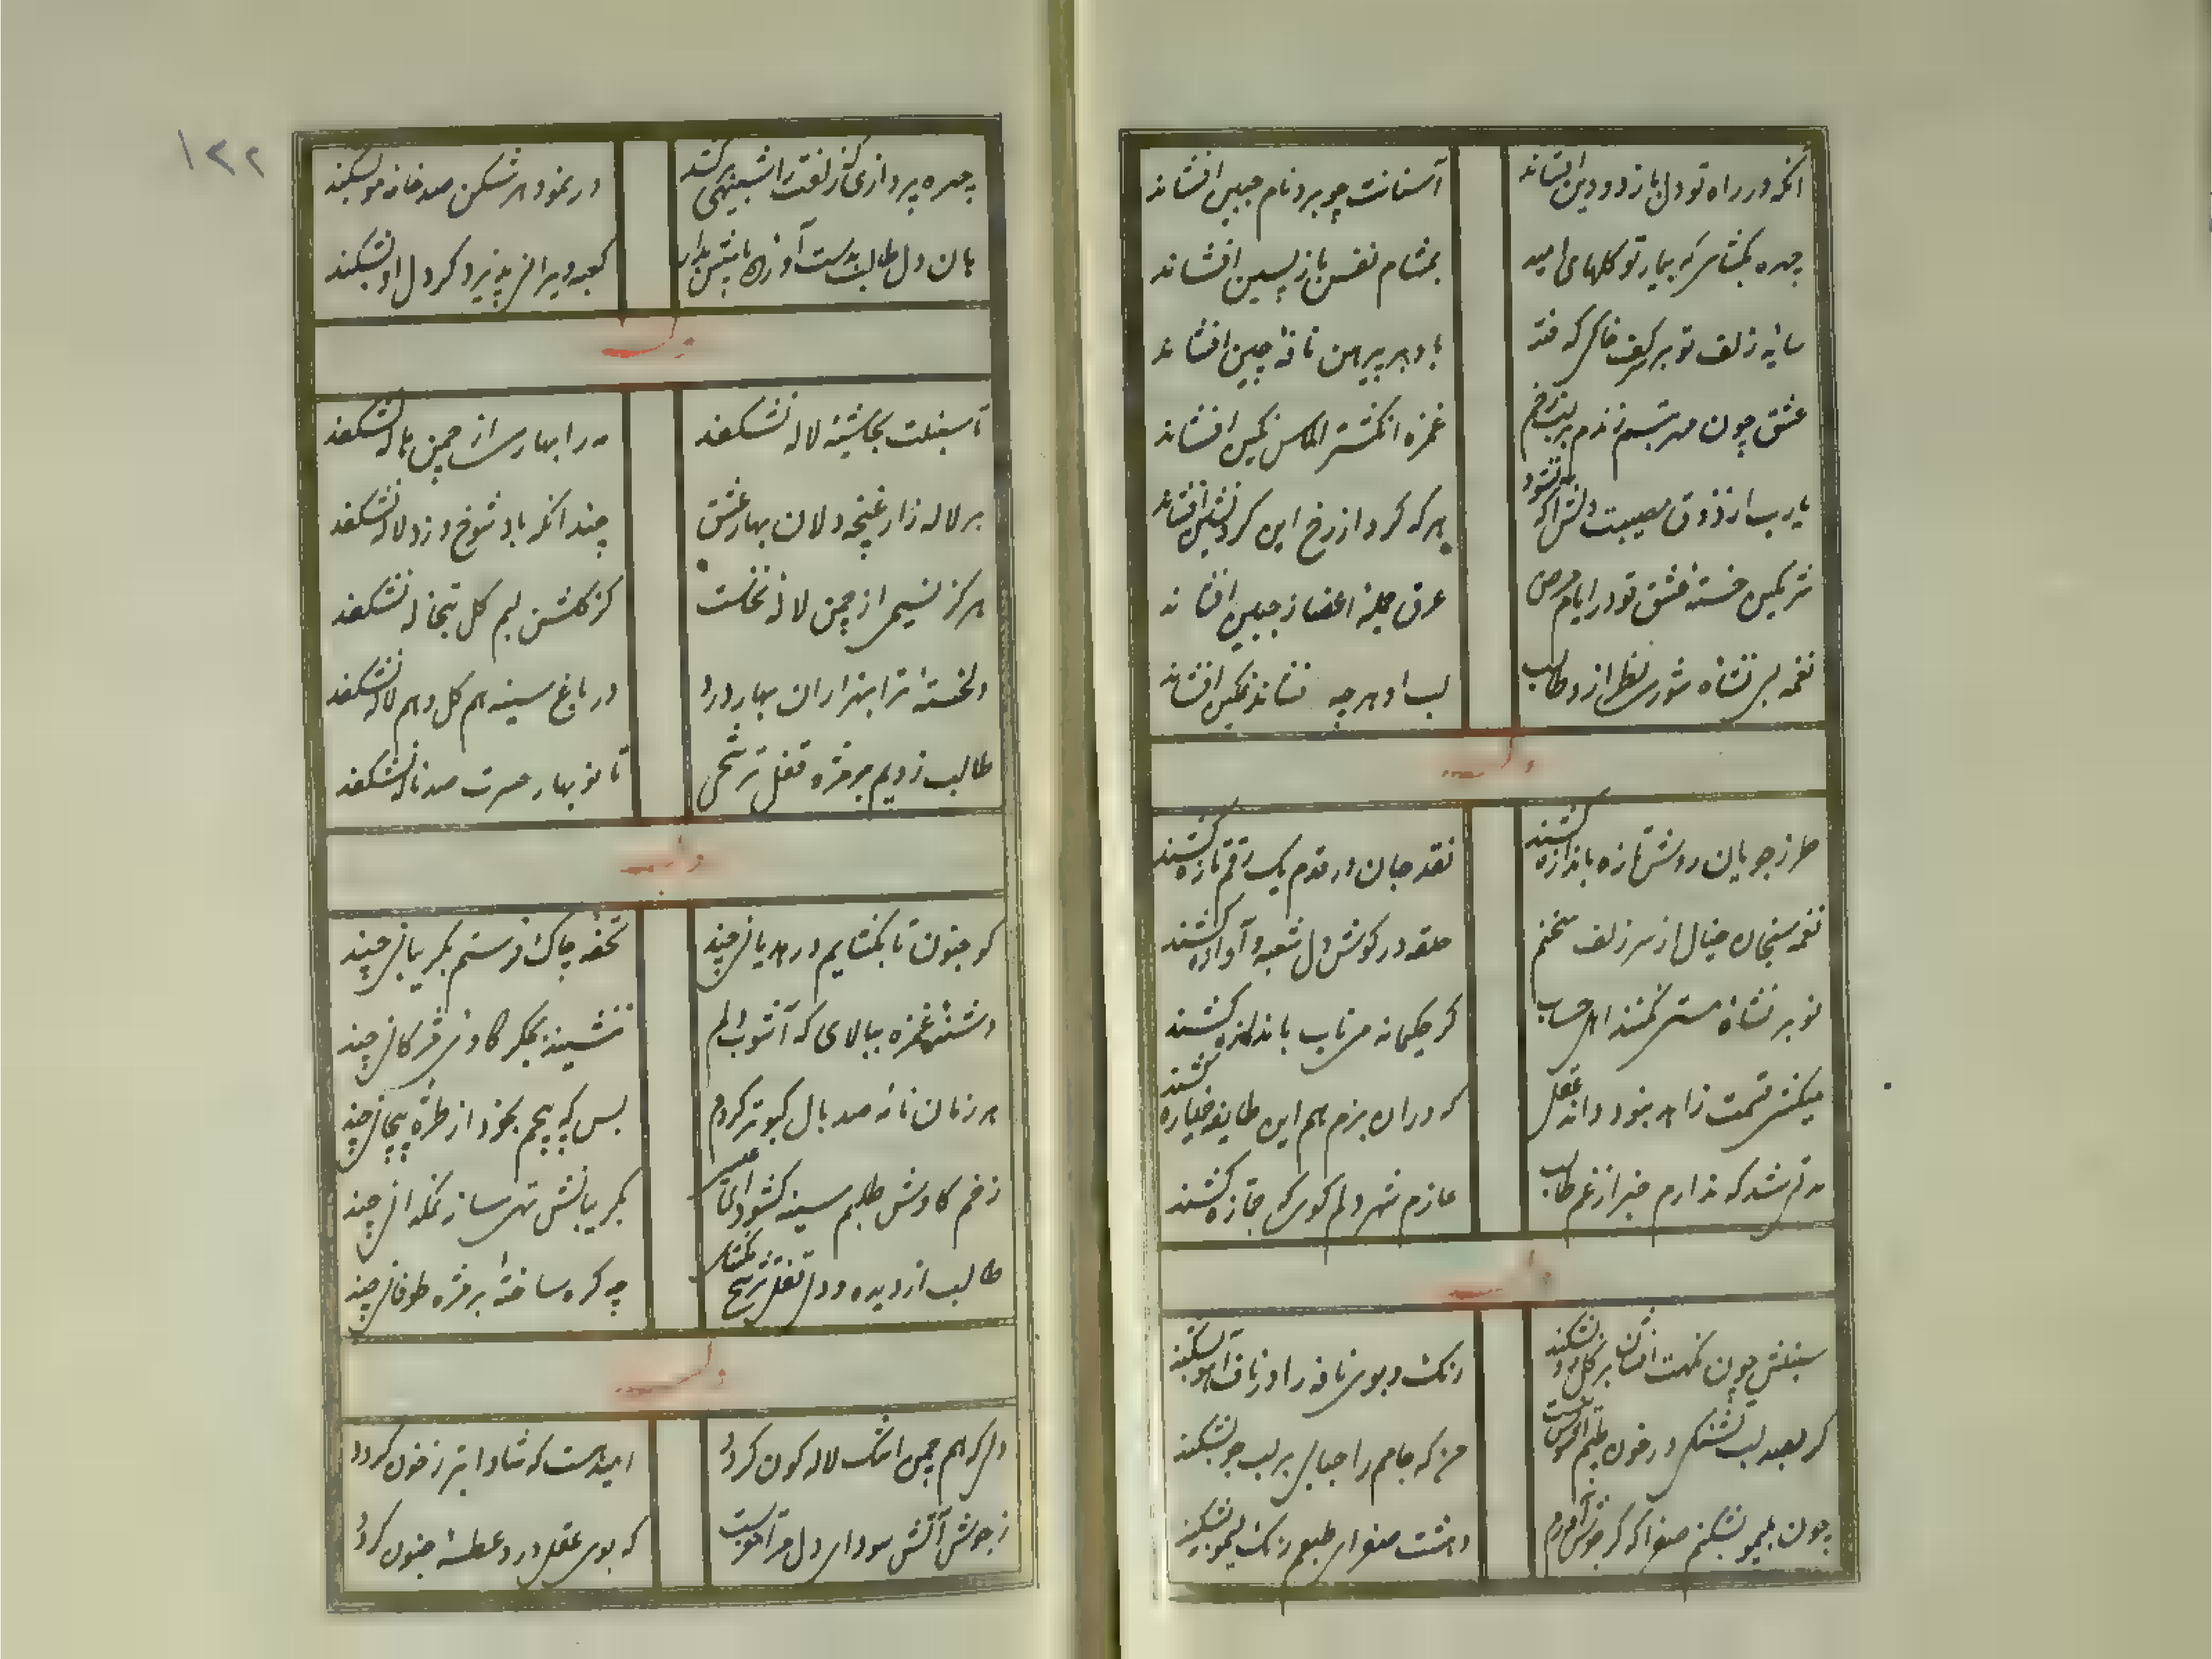 آنکه در راه تو دل بازد و دین افشاند
آستانت چو برد نام جبین افشاند
چهره بگشای که بیمار تو گلهای امید
بمشام نفس بازپسین افشاند
سایه زلف تو بر هر کف خاکی که فتد
باد بر پیرهن نافه چین افشاند
عشق چون مهر تبسم زندم بر لب زخم
غمزه انگشتر الماس نگین افشاند
یارب از ذوق مصیبت دلش آکه نشود
هرکه گرد از رخ این گرد نشین افشاند
شرمگین خسته عشق تو در ایام مرض
عرق جمله اعضا ز جبین افشاند
نغمه بس نشاه شوری نظر از و طالب
لب او هرچه فشاند نمکین افشاند
وله
طرز جویان روش تازه باندازه کشند
نقد جان در قدم یک رقم تازه کشند
نغمه سنجان خیال از سر زلف سخنم
حلقه در گوش دل شعبه و آوازه کشند
نو بر نشاه مستی نکنند اهل حساب
گر حکیمانه می ناب باندازه کشند
میکشی قسمت زاهد نبود داند عقل
که در آن بزم هم این طایفه خمیازه کشند
مدتی شد که ندارم خبر از غم طالب
عازم شهر دلم کوس که جمازه کشند
وله
سنبلش چون نکهت افشان بر گل رو بشکند
رنگ و بوی نافه را در ناف آهو بشکند
گر بصد لب تشنگی در خون طپم
من که جامم را حبابی بر لب جو بشکند
چون بلیمو بشکنم صفرا که گر جوش آورم
دهشت صفرای طبعم رنگ لیمو بشکند
۱۲۲
چهره پردازی کز زلفت را شبیهی برکشد
در نمود هر شکن صد خانه مو بشکند
هان دل طالب بدست آور
کعبه ویرانی پذیرد گر دل او بشکند
وله
تا سنبلت بحاشیه لاله نشکفد
مه را بهاری از چمن هاله نشکفد
بر لاله زار غنچه دلان بهار عشق
چندانکه باد شوخ وزد لاله نشکفد
هرگز نسیمی از چمن لاله نخاست
کز گلشن لبم گل تبخاله نشکفد
دلخسته ترا بهزاران بهار درد
در باغ سینه هم گل و هم لاله نشکفد
طالب زدیم بر مژه قفل ترشحی
تا نوبهار حسرت صد ناله نشکفد
وله
کو جنون تا بگشایم در هذیانی چند
تحفه چاک فرستم بگریبانی چند
دشنه غمزه ببالای که آشوب دلم
تشنه جگر کاوی مژگانی چند
هر زمان نامه صد بال کبوتر گردم
بس که پیچم بخود از طره پیچانی چند
زخم کاوش طلبم سینه گشودای
بگریبانش تهی ساز نمکدانی چند
طالب از دیده و دل قفل ترشح بگشای
چه گره ساخته بر مژه طوفانی چند
وله
دلی که هم چمن اشک لاله گون گردد
امید هست که شاداب تر ز خون گردد
ز جوش آتش سودای دل مرا
که بوی عقل درو عطسه جنون گردد